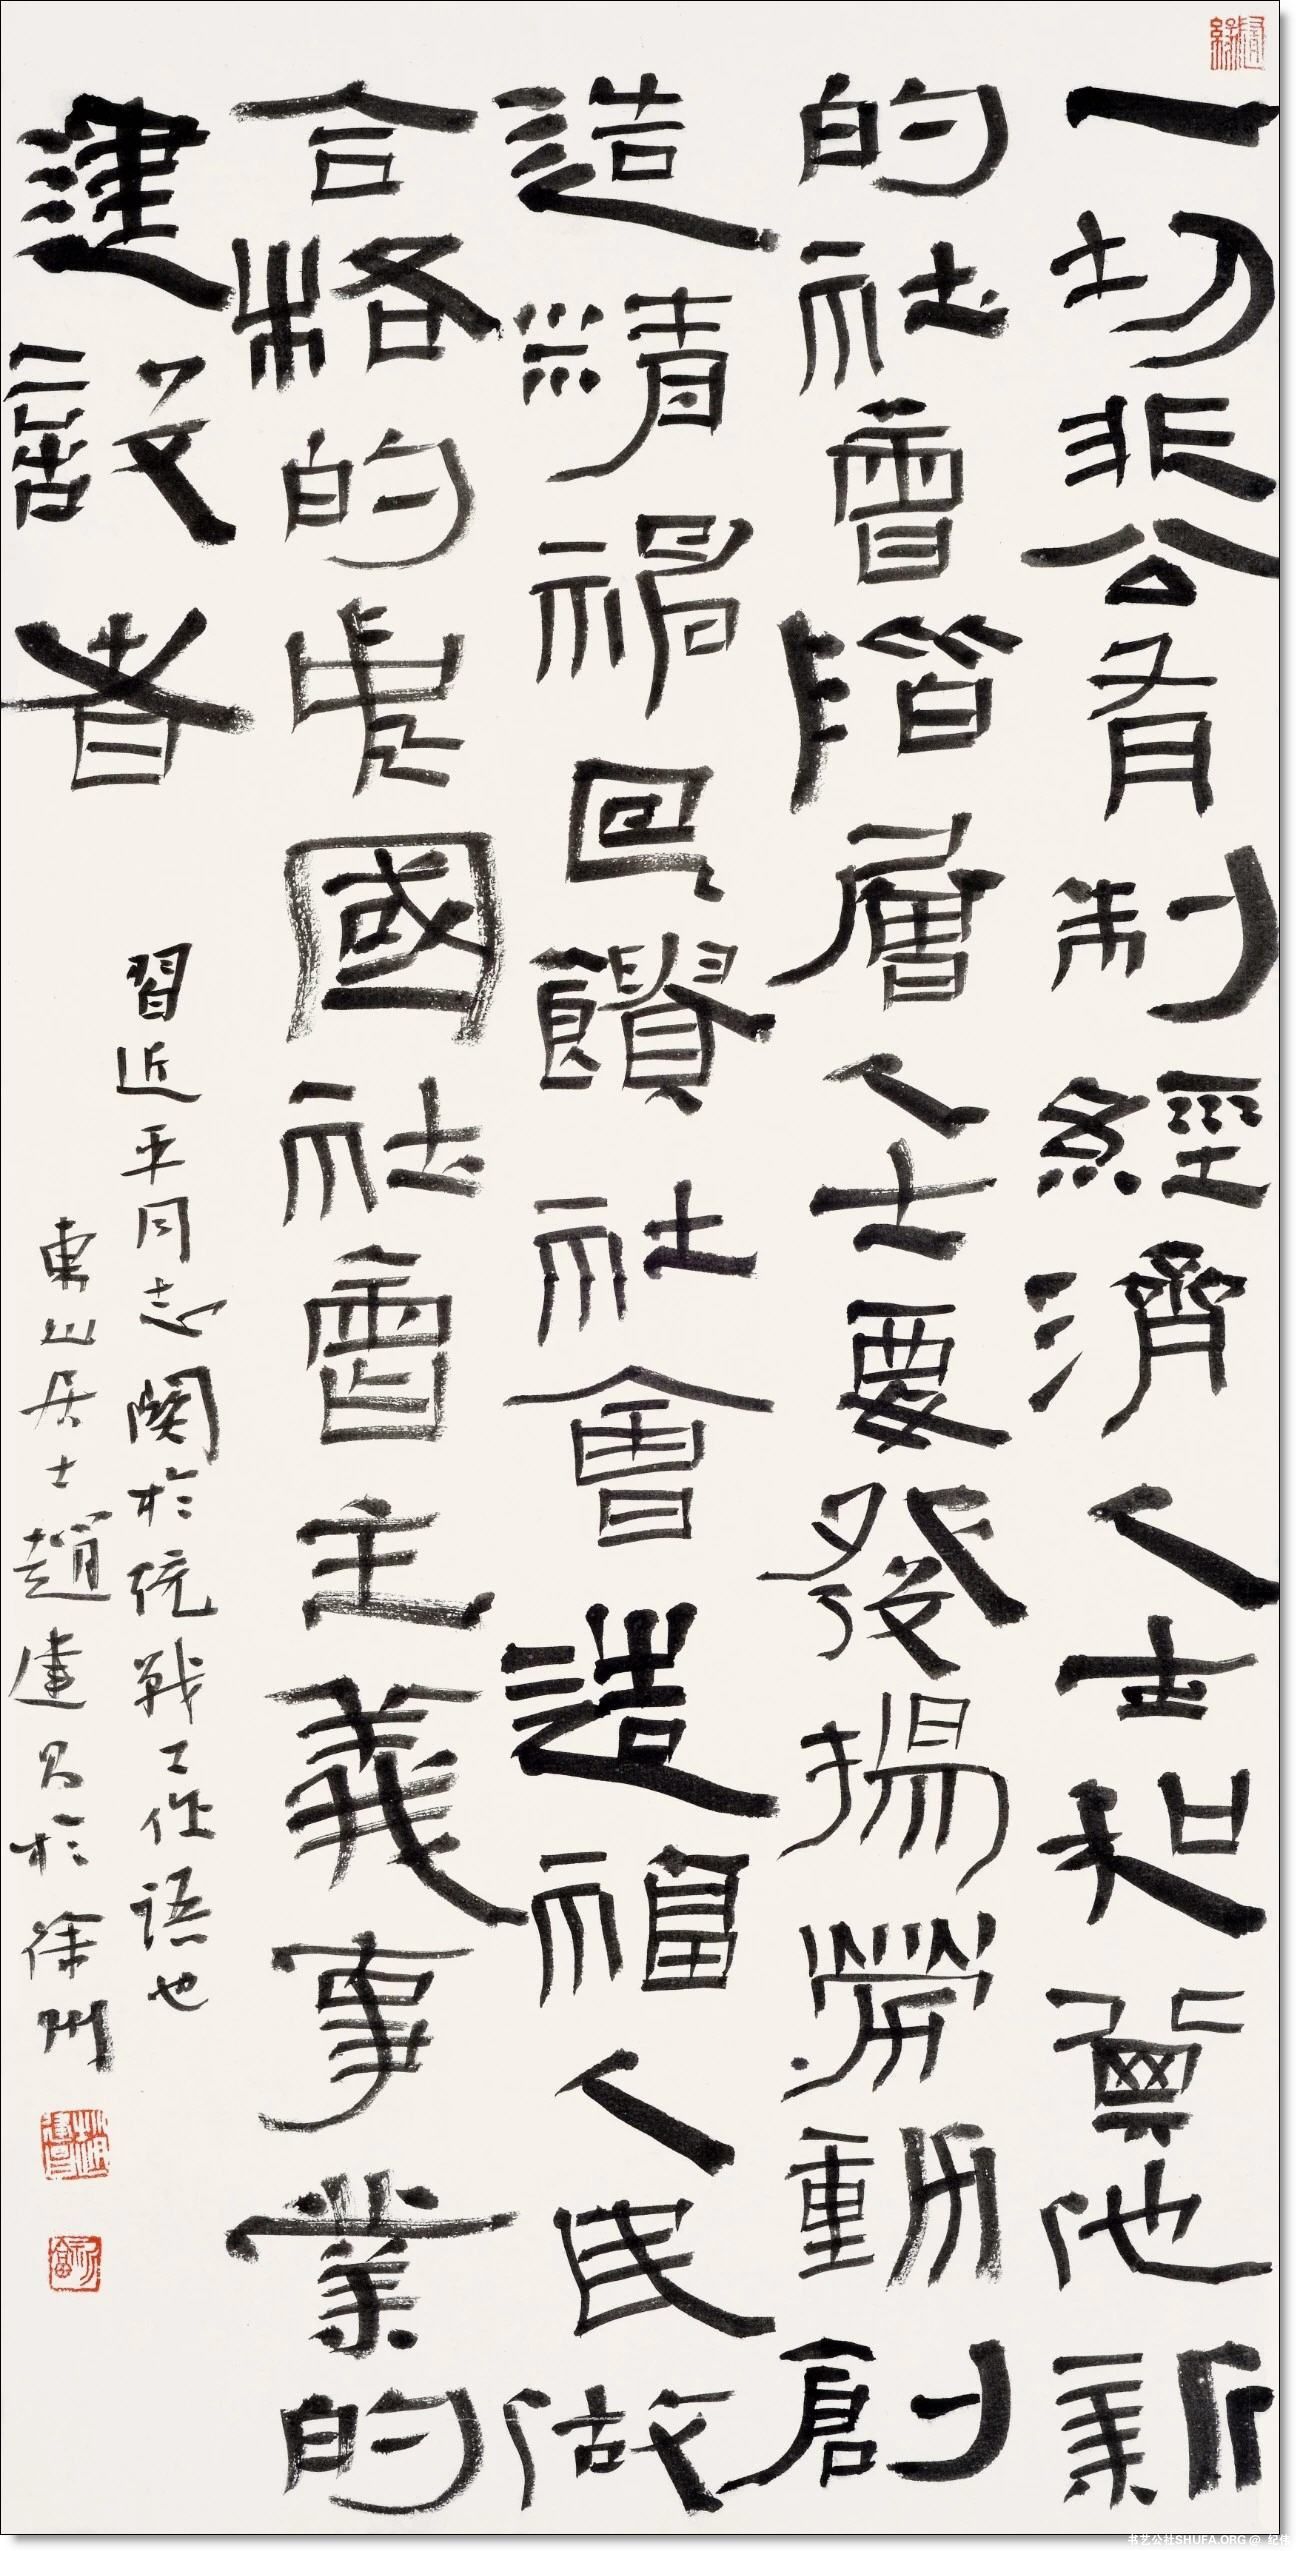 一切非公有制經濟人士和其他新
的社會階層人士要發揚勞動創
造精神回饋社會造福人民做
合格的中國社會主義事業的
建設者
習近平同志關於統戰工作語也
東山居士趙建於徐州
书艺公社SHUFA.ORG @